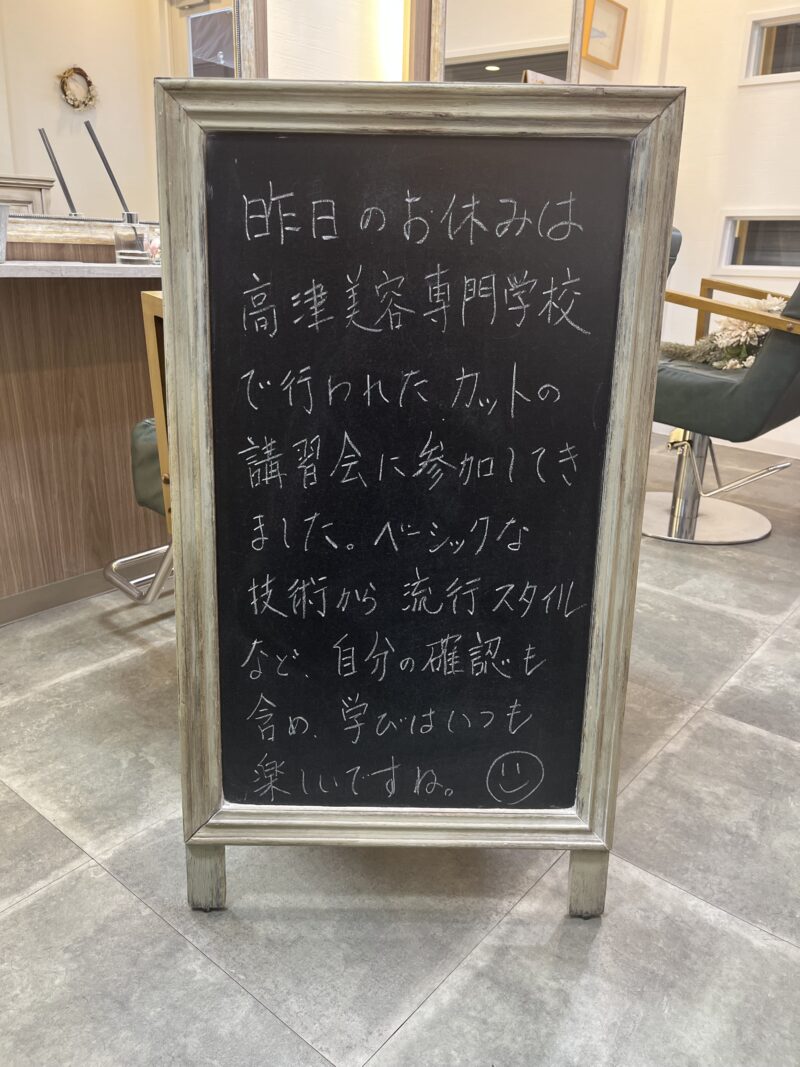 昨日のお休みは
高津美容専門学校
で行われたカットの
講習会に参加してき
ました。ベーシックな
技術から流行スタイル
など、自分の確認も
含め、学びはいつも
楽しいですね。